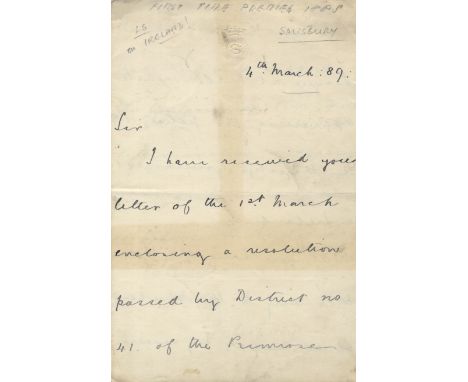 FIRST TIME PREMIER 1885
LS
on IRELAND!
SALISBURY
4th March: 89:
Sir
I have received your
letter of the 1st March
enclosing a resolution
passed by District no
41. of the Primrose